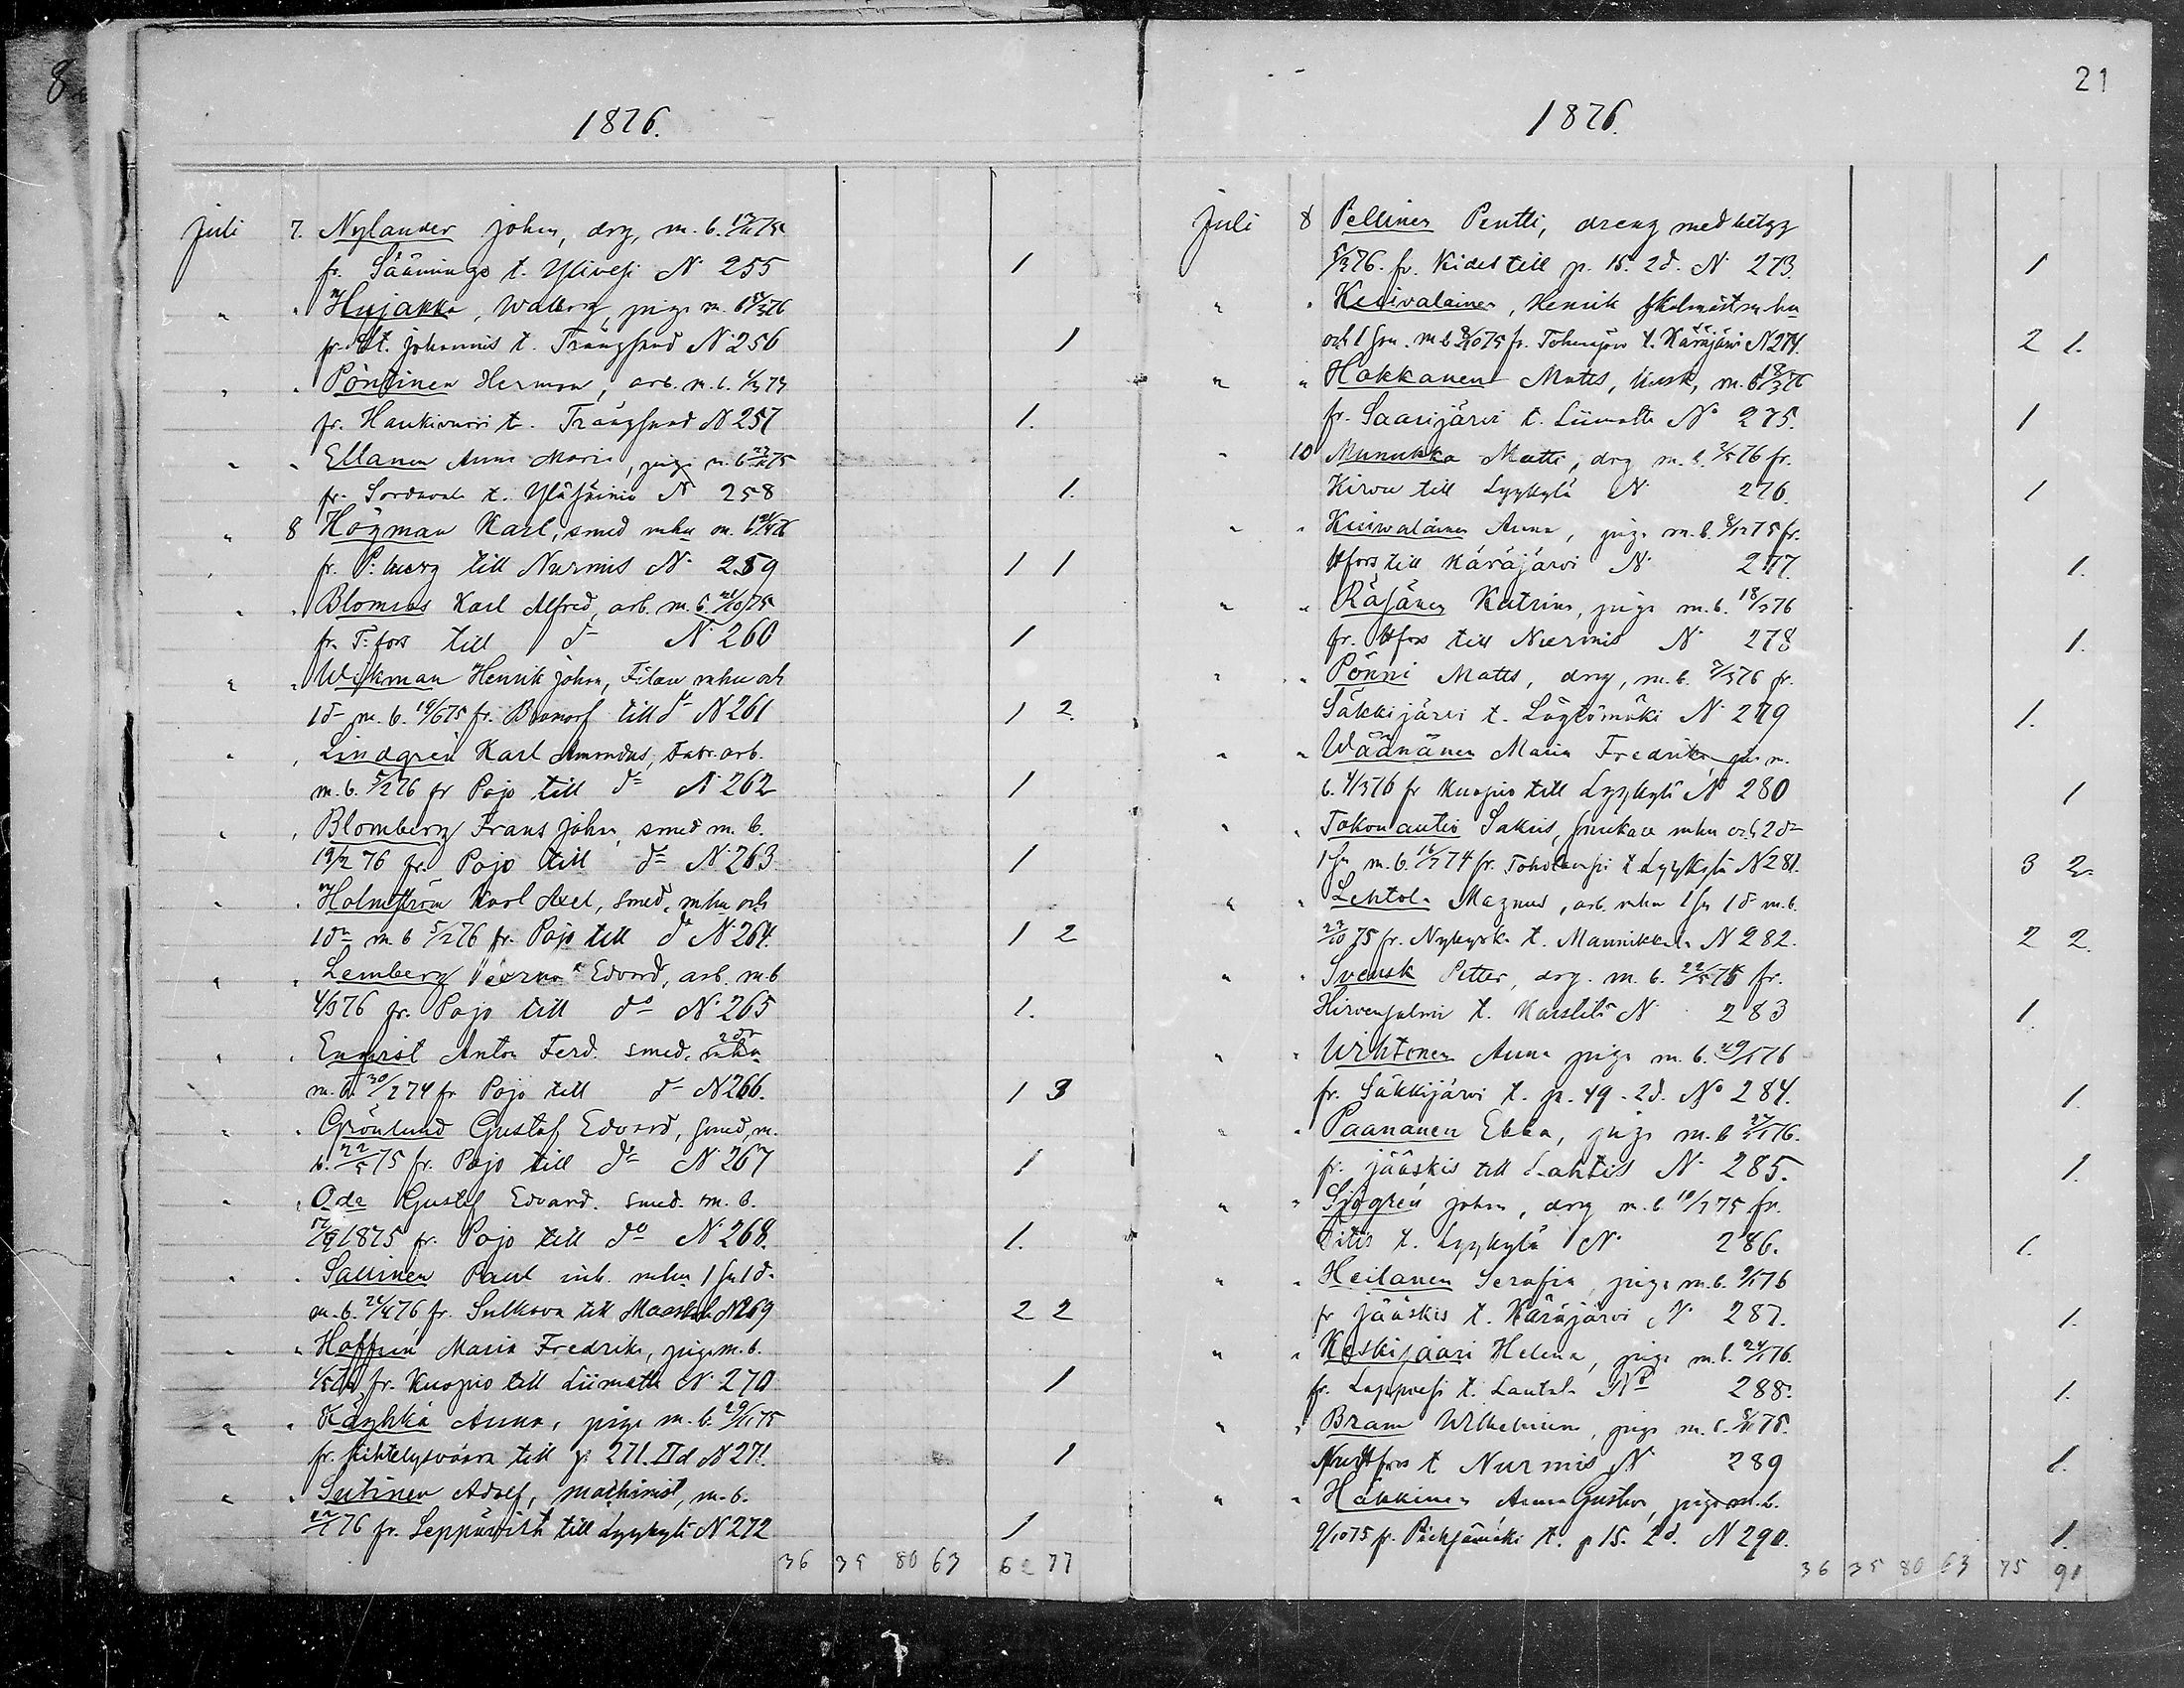 8
1876.
Juli 7. Nylander Johan, drg, m. b. 75
fr. Säämings t. Ylivesi N. 255 1
" " Hujakka, Walborg, piga m. b 76
fr. St. Johannis t. Trångsund N. 256 1
" " Pöntinen Herman, arb. m. b. 74
fr. Haukivuori t. Trångsund N 257 1.
" " Ellanen Anna Maria, piga m. b 75
fr. Sordavala t. Yläsäiniö N 258 1.
" 8 Högman Karl, smed mhu m. b 76
fr. P:burg till Nurmis N. 259 1 1
" " Blomros Karl Alfred, arb. m. b. 21/10 75
fr. T:fors till do N. 260 1
" " Wikman Henrik Johan, Filare mhu och
1 dr m. b. 19/6 75 fr. Bromarf till do N 261 1 2.
" " Lindgren Karl Amandus, fabr. arb.
m. b. 5/2 76 fr Pojo till do N. 262 1
" " Blomberg Frans Johan, smed m. b.
19/2 76 fr. Pojo till do N. 263 1
" " Holmström Karl Axel, smed, mhu och
1 dr m. b 5/2 76 fr. Pojo till do N. 264. 1 2
" " Lemberg Edvard, arb. m. b
4/3 76 fr. Pojo till do N. 265 1.
" " Enqvist Anton Ferd. smed. mhu 2 dr
m. b. 30/2 74 fr Pojo till do N 266. 1 3
" " Grönlund Gustaf Edvard, smed, m.
b. 22/5 75 fr. Pojo till do N. 267 1
" " Ode Gustaf Edvard. smed. m. b.
17/9 1875 fr. Pojo till do N. 268. 1.
" " Sallinen Paul inh. mhu 1 sn 1 d.
m. b. 76 fr. Sulkava till N 269 2 2
" " Hoffrén Maria Fredrika, piga m. b.
fr. Kuopio till Liimatta N. 270 1
" " Käyhkä Anna, piga m. b. 29/11 75
fr. Kihtelysvaara till p 271. IId N 271. 1
" " Sutinen Adolf, machinist, m. b.
76 fr. Leppävirta till Lyykylä N 272 1
36 35 80 63 62 77
21
1876.
Juli 8 Pellinen Pentti, dreng med betyg
5/3 76. fr. Kides till p. 15. 2d. N. 273. 1
" " Kuivalainen, Henrik skolmästr mhu
och 1 sn. m b 8/10 75 fr. Tohmajärvi t. Käräjärvi N 274. 2 1.
" " Hakkanen Matts, kusk, m. b. 18/3 76
fr. Saarijärvi t. Liimatta No 275. 1
" 10 Munukka Matti, drg m. b. 2/5 76 fr.
Kirvu till Lyykylä N. 276. 1
" " Kuiwalainen Anna, piga m. b. 8/12 75 fr.
Hfors till Käräjärvi N. 277. 1.
" " Räsänen Katrina, piga m. b. 18/2 76
fr. Hfors till Nurmis N. 278 1.
" " Pönni Matts, drg, m. b. 76 fr.
Säkkijärvi t. Löytömäki N. 279 1.
" " Wäänänen Maria Fredrika, pa m.
b. 4/3 76 fr Kuopio till Lyykylä No 280 1
" " Tokonautio Sakris, snickare mhu och 2 dr
1 sn m. b. 16/7 74 fr. Toholampi t Lyykylä N 281. 3 2
" " Lehtola Magnus, arb. mhu 1 sn 1 d m. b.
22/10 75 fr. Nykyrka t. Mannikkala N 282. 2 2.
" " Svensk Petter, drg. m. b. 22/5 75 fr.
Hirvensalmi t. Karstilä N. 283 1.
" " Wihtonen Anna piga m. b. 76
fr. Säkkijärvi t. p. 49. 2d. No 284. 1.
" " Paananen Ebba, piga m. b 76.
fr. Jääskis till Lahtis N. 285. 1.
" " Sjögren Johan, drg m. b 10/7 75 fr.
Iitis t. Lyykylä N. 286. 1.
" " Heilanen Serafia, piga m. b. 76
fr Jääskis t. Käräjärvi N. 287. 1.
" " Keskisaari Helena, piga m. b. 76.
fr. Lappvesi t. Lautala No 288. 1.
" " Bram Wilhelmina, piga m. b. 75.
Hfors t Nurmis N. 289 1.
" " Häkkinen Anna Gustava, piga m. b.
9/10 75 fr. Pielisjärvi t. p 15. 2d. N 290. 1.
36 35 80 63 75 91